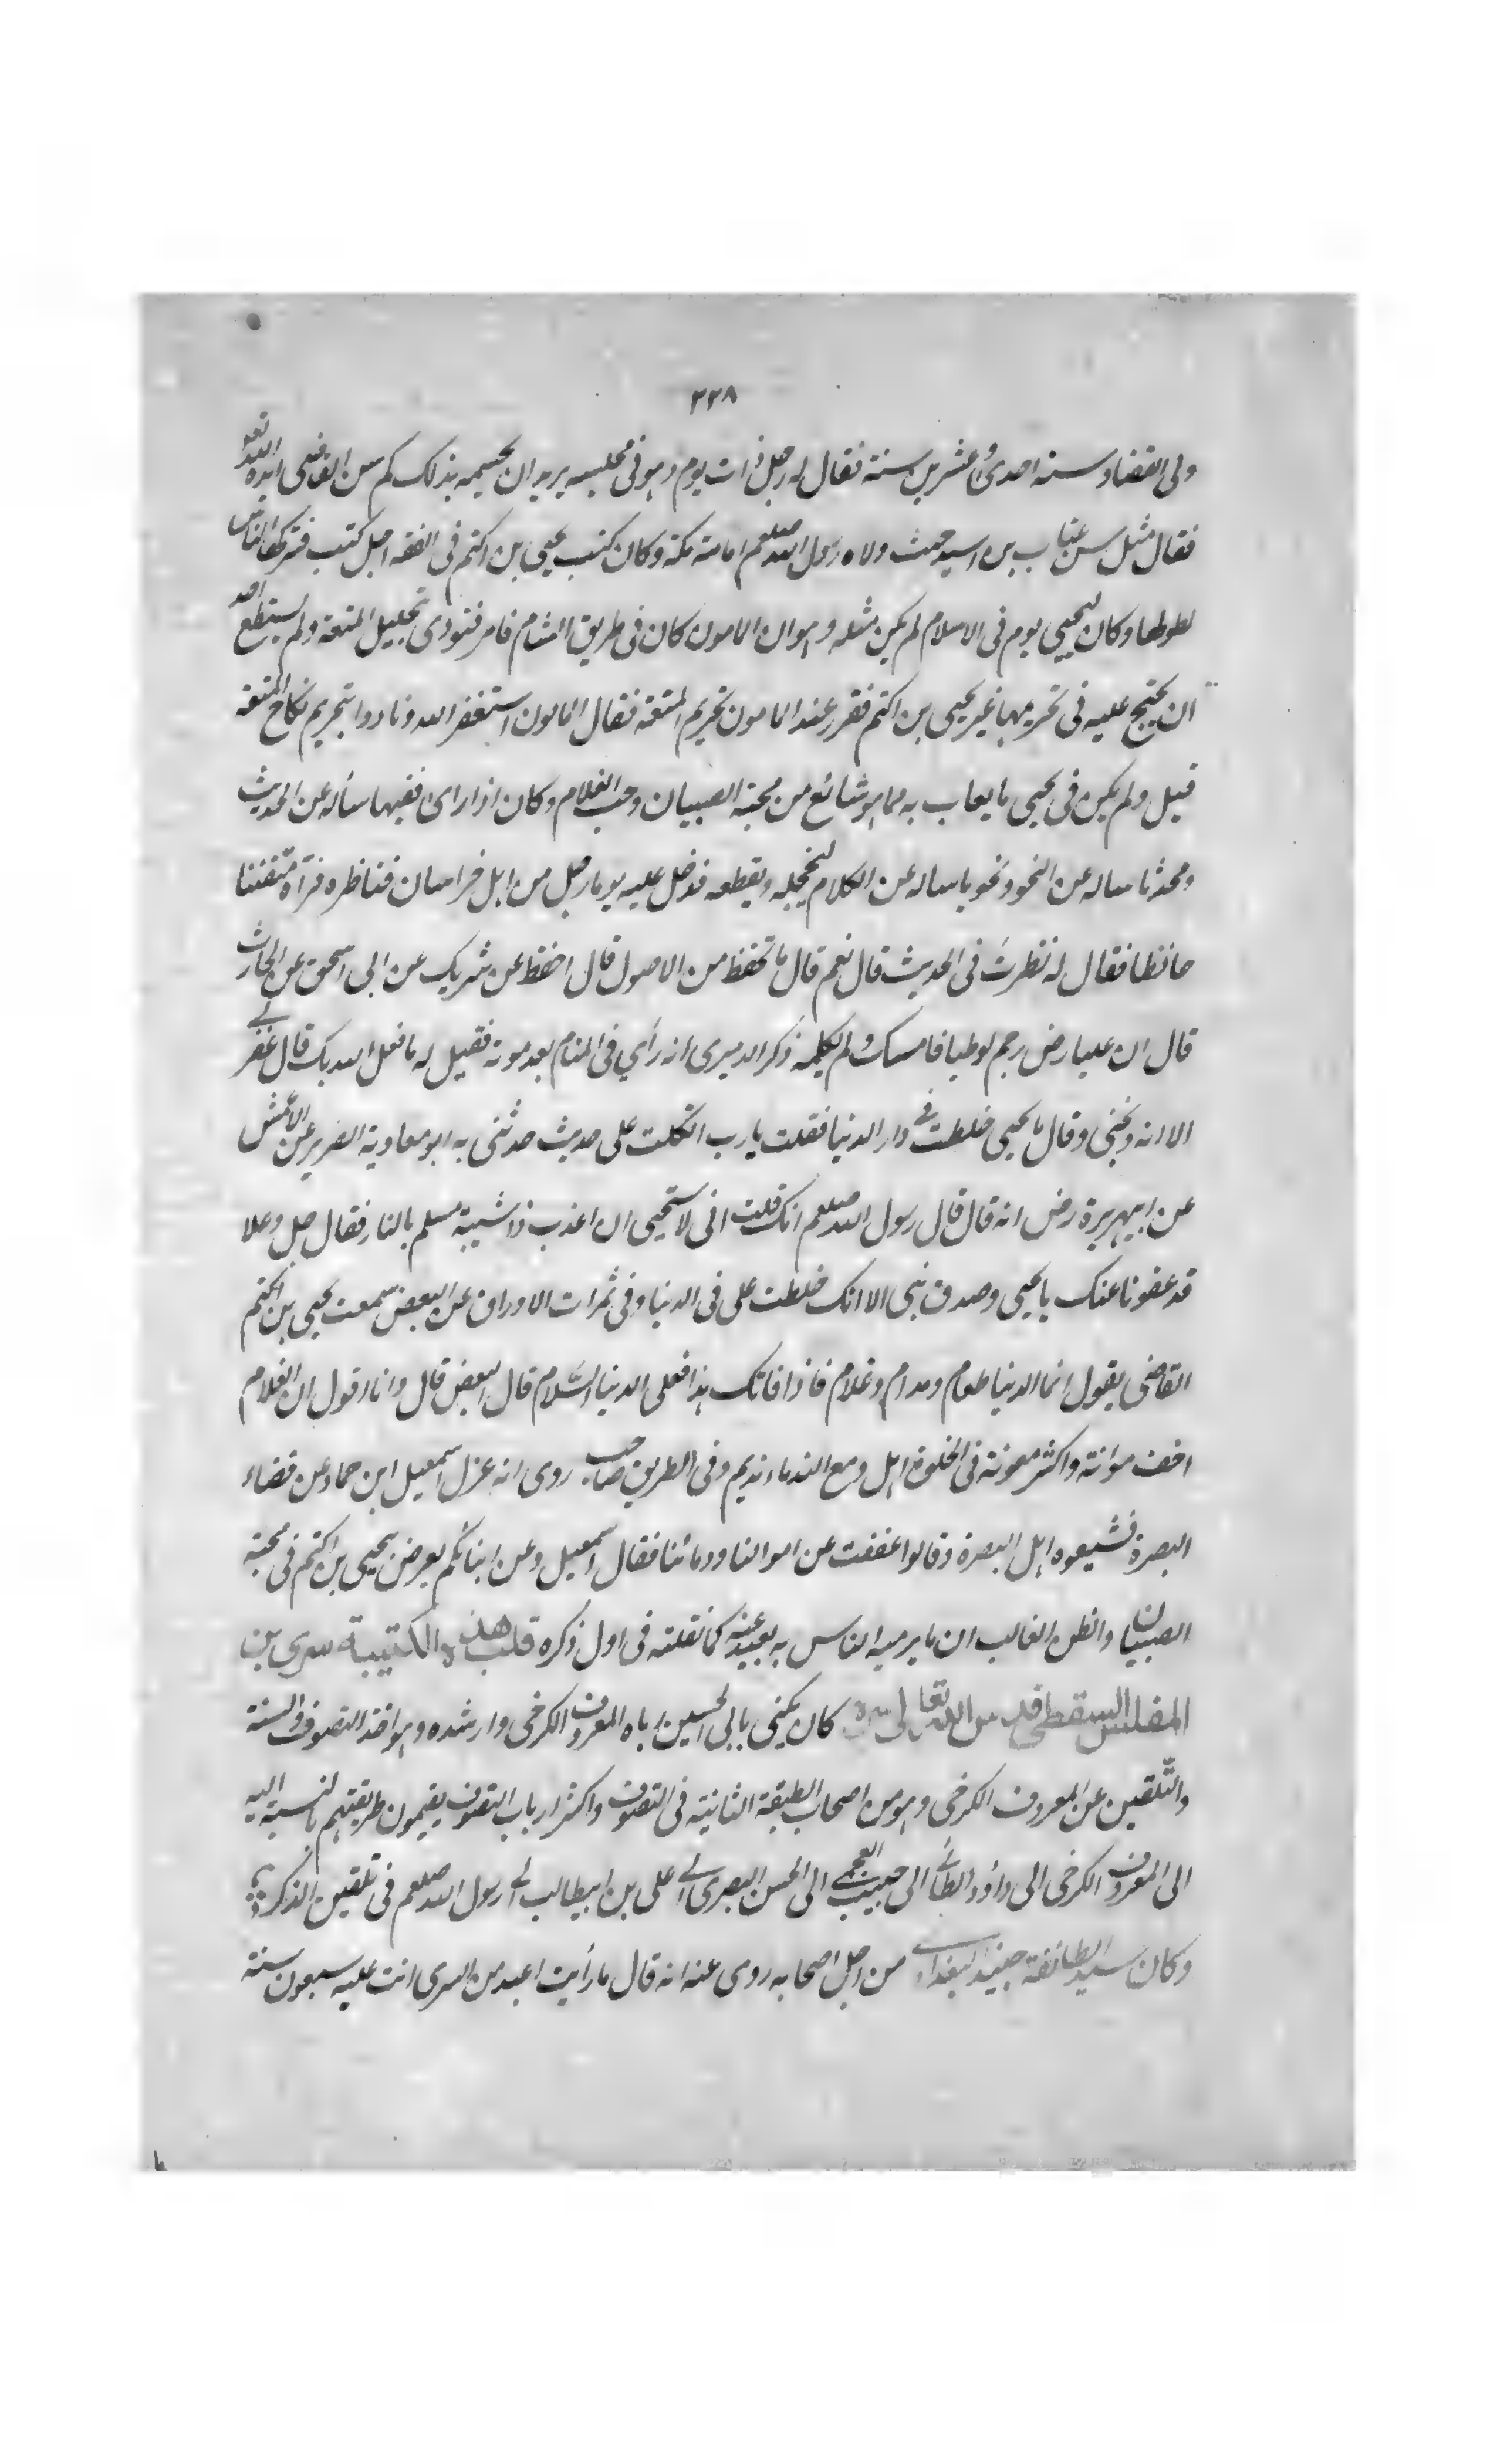 ٢٢٨
ولى القضاء وسنه احدى وعشرين سنة فقال له رجل ذات يوم وهو فى مجلسه يريد ان يحشمه بذلك كم سن القاضى ايده الله تعه
فقال مثل سن عتاب بن اسيد حيث ولاه رسول الله صلعم امامة مكة وكان كتب يحيى بن اكثم فى الفقه اجل كتب فتركها الناس
لطولها وكان ليحيى يوم فى الاسلام لم يكن مثله وهو ان المامون كان فى طريق الشام فامر فنودى بتحليل المتعة ولم يستطع احد
ان يحتج عليه فى تحريمها غير يحيى بن اكثم فقرر عند المامون تحريم المتعة فقال المامون استغفر الله ونادوا بتحريم نكاح المتعة
قيل ولم يكن فى يحيى ما يعاب به مما هو شائع من محبة الصبيان وحب الغلام وكان اذا راى فقيها سأله عن الحديث
ومحدثا ساله عن النحو ونحويا ساله عن الكلام ليخجله ويقطعه فدخل عليه يوما رجل من اهل خراسان فناظره فرآه متفننا
حافظا فقال له نظرت فى الحديث قال نعم قال ما تحفظ من الاصول قال احفظ عن شريك عن ابى اسحق عن الحارث
قال ان عليا رض رجم لوطيا فامسك ولم يكلمه ذكر الدميرى انه رأي فى المنام بعد موته فقيل له ما فعل الله بك قال غفر لے
الا انه وبخنى وقال يا يحيى خلطت فے دار الدنيا فقلت يا رب اتكلت على حديث حدثنى به ابو معاوية الضرير عن الاعمش
عن ابيهريرة رض انه قال قال رسول الله صلعم انك قلت انى لاستحيى ان اعذب ذا شيبة مسلم بالنار فقال جل وعلا
قد عفونا عنك يا يحيى وصدق نبى الا انك خلطت على فى الدنيا وفى ثمرات الاوراق عن البعض سمعت يحيى بن اكثم
القاضى يقول انما الدنيا طعام ومدام وغلام فاذا فاتك هذا فعلى الدنيا السّلام قال البعض قال وانا اقول ان الغلام
اخف مؤنة واكثر معونة فى الخلوة اهل ومع الندماء نديم وفى الطريق صاحب روى انه عزل اسمعيل ابن حماد عن قضاء
البصرة فشيعوه اهل البصرة وقالوا عففت عن اموالنا ودمائنا فقال اسمعيل وعن ابنائكم يعرض بيحيى بن اكثم فى محبة
الصبيان والظن الغالب ان ما يرميه الناس به بعيد عنه كما نقلته فى اول ذكره قلب هذه الكتيبة سرى بن
المفلس السقطى قدس الله تعالى سره كان يكنى بابى الحسين رباه المعروف الكرخى وارشده وهو اخذ التصوف والسنة
والتّلقين عن المعروف الكرخى وهو من اصحاب الطبقة الثانية فى التصوف واكثر ارباب التصوف يقيمون طريقتهم بالنسبة اليه
الى المعروف الكرخى الى داؤد الطائے الى حبيب العجمے الى الحسن البصرى الے على بن ابيطالب الے رسول الله صلعم فى تلقين الذكر
وكان سيد الطائفة جنيد البغدادے من اجل اصحابه روى عنه انه قال ما رأيت اعبد من السرى اتت عليه سبعون سنة